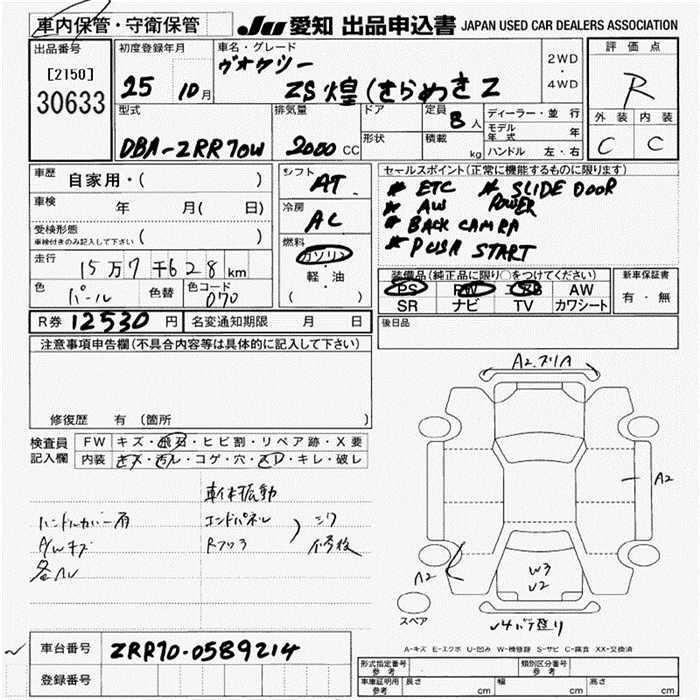 車内保管・守衛保管 JU 愛知 出品申込書 JAPAN USED CAR DEALERS ASSOCIATION
出品番号
[2150]
30633
初度登録年月
25 10月
車名・グレード
ヴォクシー
ZS 煌 (きらめき Z
2WD
・
4WD
評価点
R
外装 内装
C C
型式
DBA-ZRR70W
排気量
2000 CC
ドア
形状
定員 8 人
積載 kg
ディーラー・並行
モデル年式 年
ハンドル 左・右
車歴 自家用・( )
車検 年 月( 日)
受検形態
車検付きのみ記入して下さい ( )
走行
15万7千628km
色 パール 色替 色コード 070
シフト AT
冷房 AC
燃料
ガソリン
・
軽・油
( )
セールスポイント(正常に機能するものに限ります)
* ETC * SLIDE DOOR
* AW POWER
* BACK CAMRA
* PUSH START
装備品(純正品に限り○をつけてください)
PS PW AW
SR ナビ TV カワシート
新車保証書
有・無
R券 12530 円 名変通知期限 月 日
後日品
注意事項申告欄(不具合内容等は具体的に記入して下さい)
修復歴 有 (箇所 )
検査員
記入欄
FW キズ・飛石・ヒビ割・リペア跡・X要
内装 キズ・汚レ・コゲ・穴・スレ・キレ・破レ
車体振動
ハンドルカバー有 エンドパネル
A/Wキズ
A2
A2
A2
W3
U2
スペア
A-キズ E-エクボ U-凹み W-補修跡 S-サビ C-腐食 XX-交換済
車台番号 ZRR70-0589214
登録番号
形式指定番号 参考 類別区分番号 参考
車庫証明用 参考 長さ cm 幅 cm 高さ cm